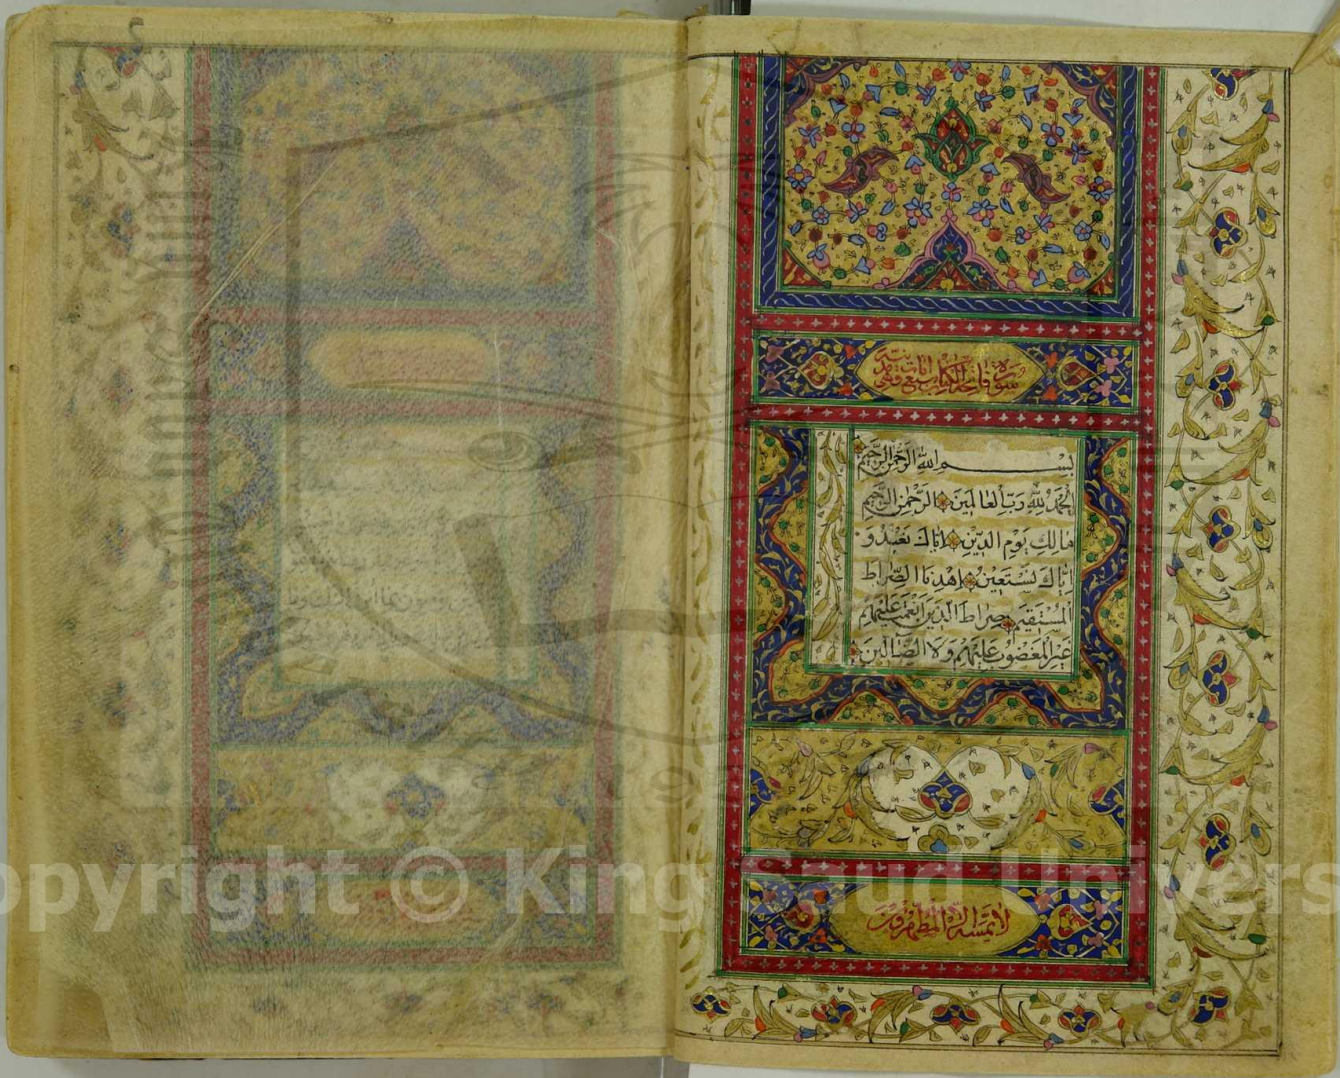 سورة فاتحة الكتاب سبع آيات
بِسْمِ اللهِ الرَّحْمٰنِ الرَّحِيمِ
اَلْحَمْدُ لِلّٰهِ رَبِّ الْعَالَمِينَ الرَّحْمٰنِ الرَّحِيمِ
مَالِكِ يَوْمِ الدِّينِ اِيَّاكَ نَعْبُدُ وَ
اِيَّاكَ نَسْتَعِينُ اِهْدِنَا الصِّرَاطَ
الْمُسْتَقِيمَ صِرَاطَ الَّذِينَ اَنْعَمْتَ عَلَيْهِمْ
غَيْرِ الْمَغْضُوبِ عَلَيْهِمْ وَلَا الضَّالِّينَ
لا يمسه الا المطهرون
opyright © King Saud Univers